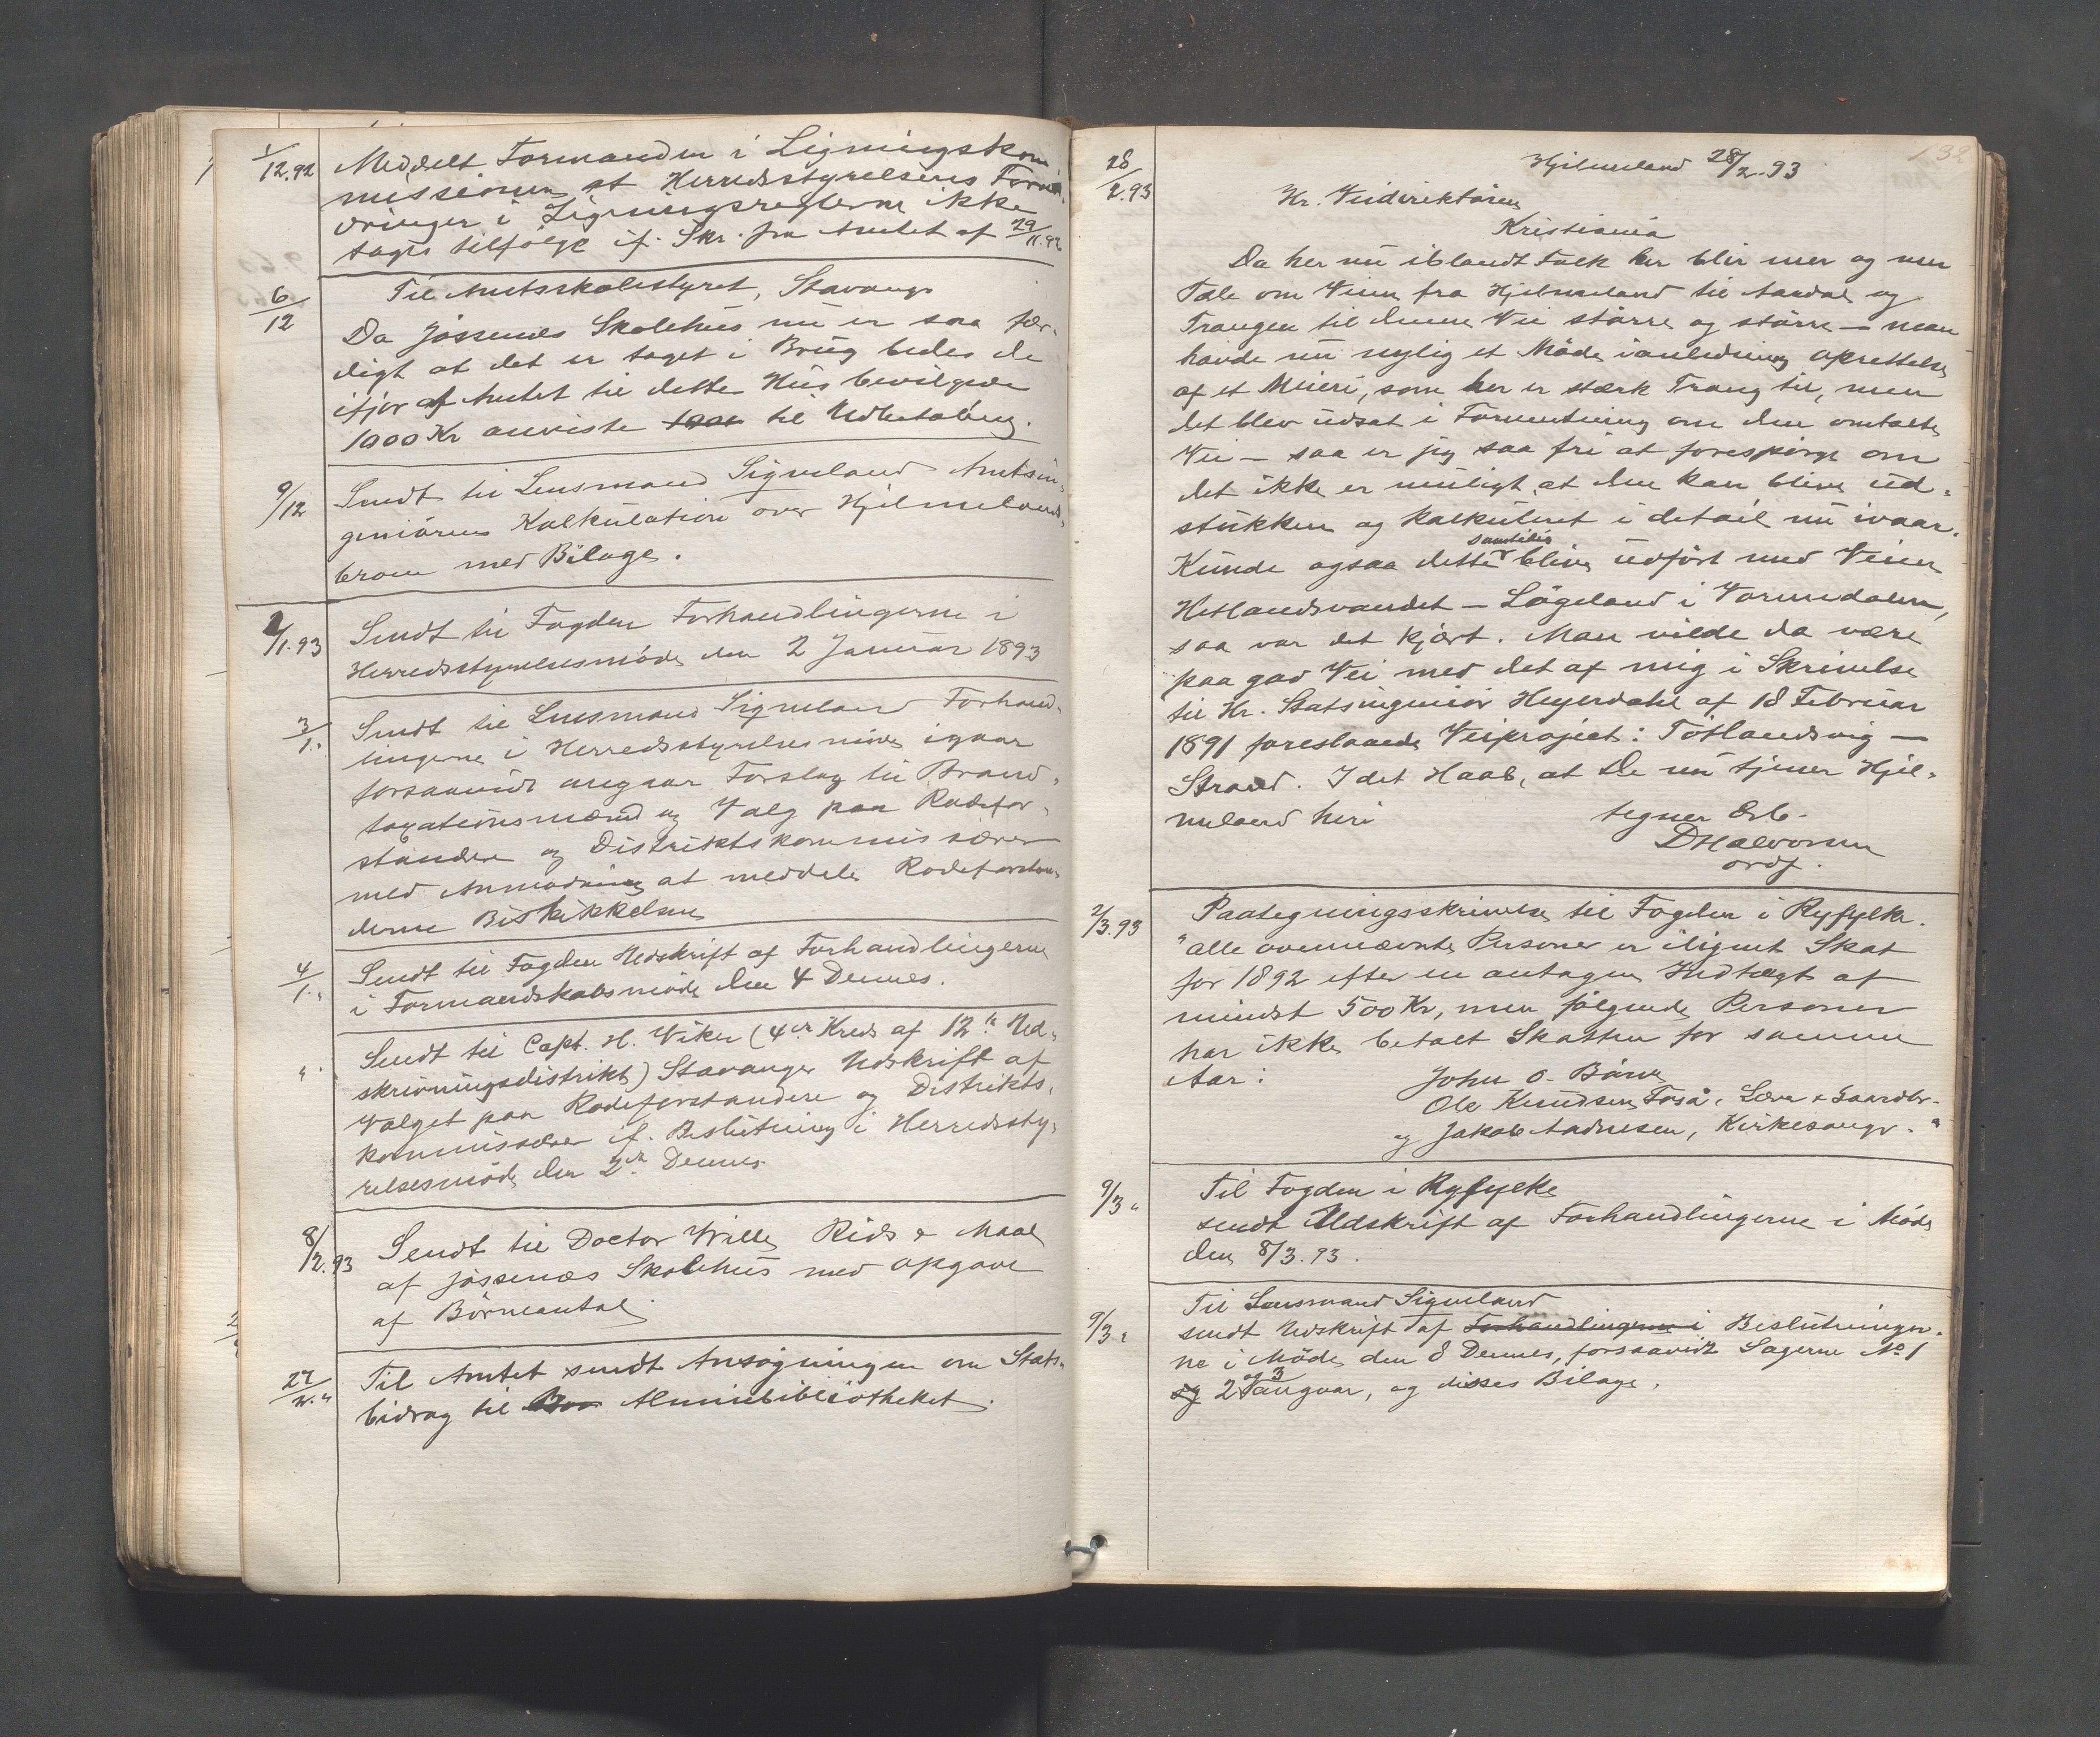 1/12.92 Meddelt Formanden i Ligningskom
missionen at Herredsstyrelsens Foran-
dringer i Ligningsreglerne ikke
toges tilfølge if. Skr. fra Amtet af 29/11.92
6/12 Til Amtsskolestyret, Stavanger
Da Jøssenæs Skolehus nu er saa fær-
digt at det er taget i Brug bedes de
ifjor af Amtet til dette Hus bevilgede
1000 Kr anviste til Udbetaling.
9/12 Sendt til Lensmand Signeland Amtsin-
geniørens Kalkulation over Hjelmelands-
broen med Bilage.
2/1.93 Sendt til Fogden Forhandlingerne i
Herredsstyrelsesmøde den 2 Januar 1893
3/1." Sendt til Lensmand Signeland Forhand-
lingerne i Herredsstyrelsesmøde igaar
forsaavidt angaar Forslag til Brand-
taxationsmænd og Valg paa Rodefor-
standere og Distriktskommissærer
med Anmodning at meddele Rodeforstan-
derne Beskikkelsen
4/1." Sendt til Fogden Udskrift af Forhandlingerne
i Formandskabsmøde den 4 Dennes.
" Sendt til Capt. H. Wiker (4de Kreds af 12te Ud-
skrivningsdistrikt) Stavanger Udskrift af
Valget paa Rodeforstandere og Distrikts-
kommissærer if. Beslutning i Herredssty-
relsesmøde den 2den Dennes
8/2.93 Sendt til Doctor Wille Rids & Maal
af Jøssenæs Skolehus med Opgave
af Børneantal
27/2." Til Amtet sendt Ansøgningen om Stats-
bidrag til Almuebibliotheket.
132
28/2.93 Hjelmeland 28/2.93
Hr. Veidirektøren
Kristiania
Da her nu iblandt Folk her blir mer og mer
Tale om Veien fra Hjelmeland til Aardal og
Trangen til denne Vei større og større — man
havde nu nylig et Møde ianledning Oprettelse
af et Meieri, som her er stærk Trang til, men
det blev udsat i Forventning om den omtalte
Vei — saa er jeg saa fri at forespørge om
det ikke er muligt at den kan blive ud-
stukken og kalkuleret i detail nu ivaar.
Kunde ogsaa dette samtidig blive udført med Veien
Hetlandsvandet — Løgeland i Vormedalen,
saa var det kjært. Man vilde da være
paa god Vei med det af mig i Skrivelse
til Hr. Statsingeniør Heyerdahl af 18 Februar
1891 foreslaaede Veiproject: Tøtlandsvig —
Strand. I det Haab, at De nu tjener Hjel-
meland heri tegner Erb.
DHalvorsen
ordf.
2/3.93 Paategningsskrivelse til Fogden i Ryfylke.
"alle ovennævnte Personer er ilignet Skat
for 1892 efter en antagen Indtægt af
mindst 500 Kr, men følgende Personer
har ikke betalt Skatten for samme
Aar: John O. Børve
Ole Knudsen Foså, Lærer & Gaardbr.
og Jakob Andresen, Kirkesanger."
9/3 " Til Fogden i Ryfylke
sendt Udskrift af Forhandlingerne i Møde
den 8/3.93.
9/3 " Til Lensmand Signeland
sendt Udskrift af Forhandlingerne i Beslutninger-
ne i Møde den 8 Dennes, forsaavidt Sagerne No 1
2 og 3 angaar, og disses Bilage.